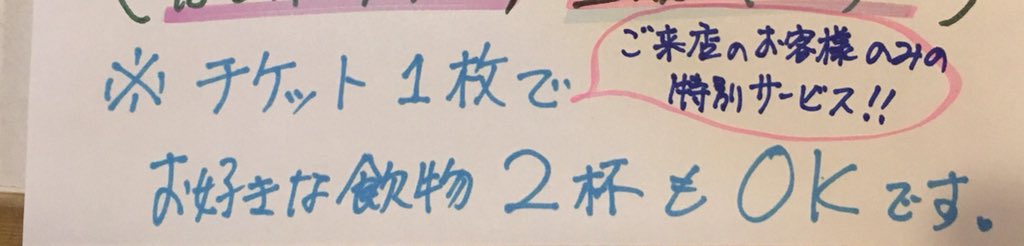 ※チケット1枚で
ご来店のお客様のみの
特別サービス!!
お好きな飲物2杯もOKです。